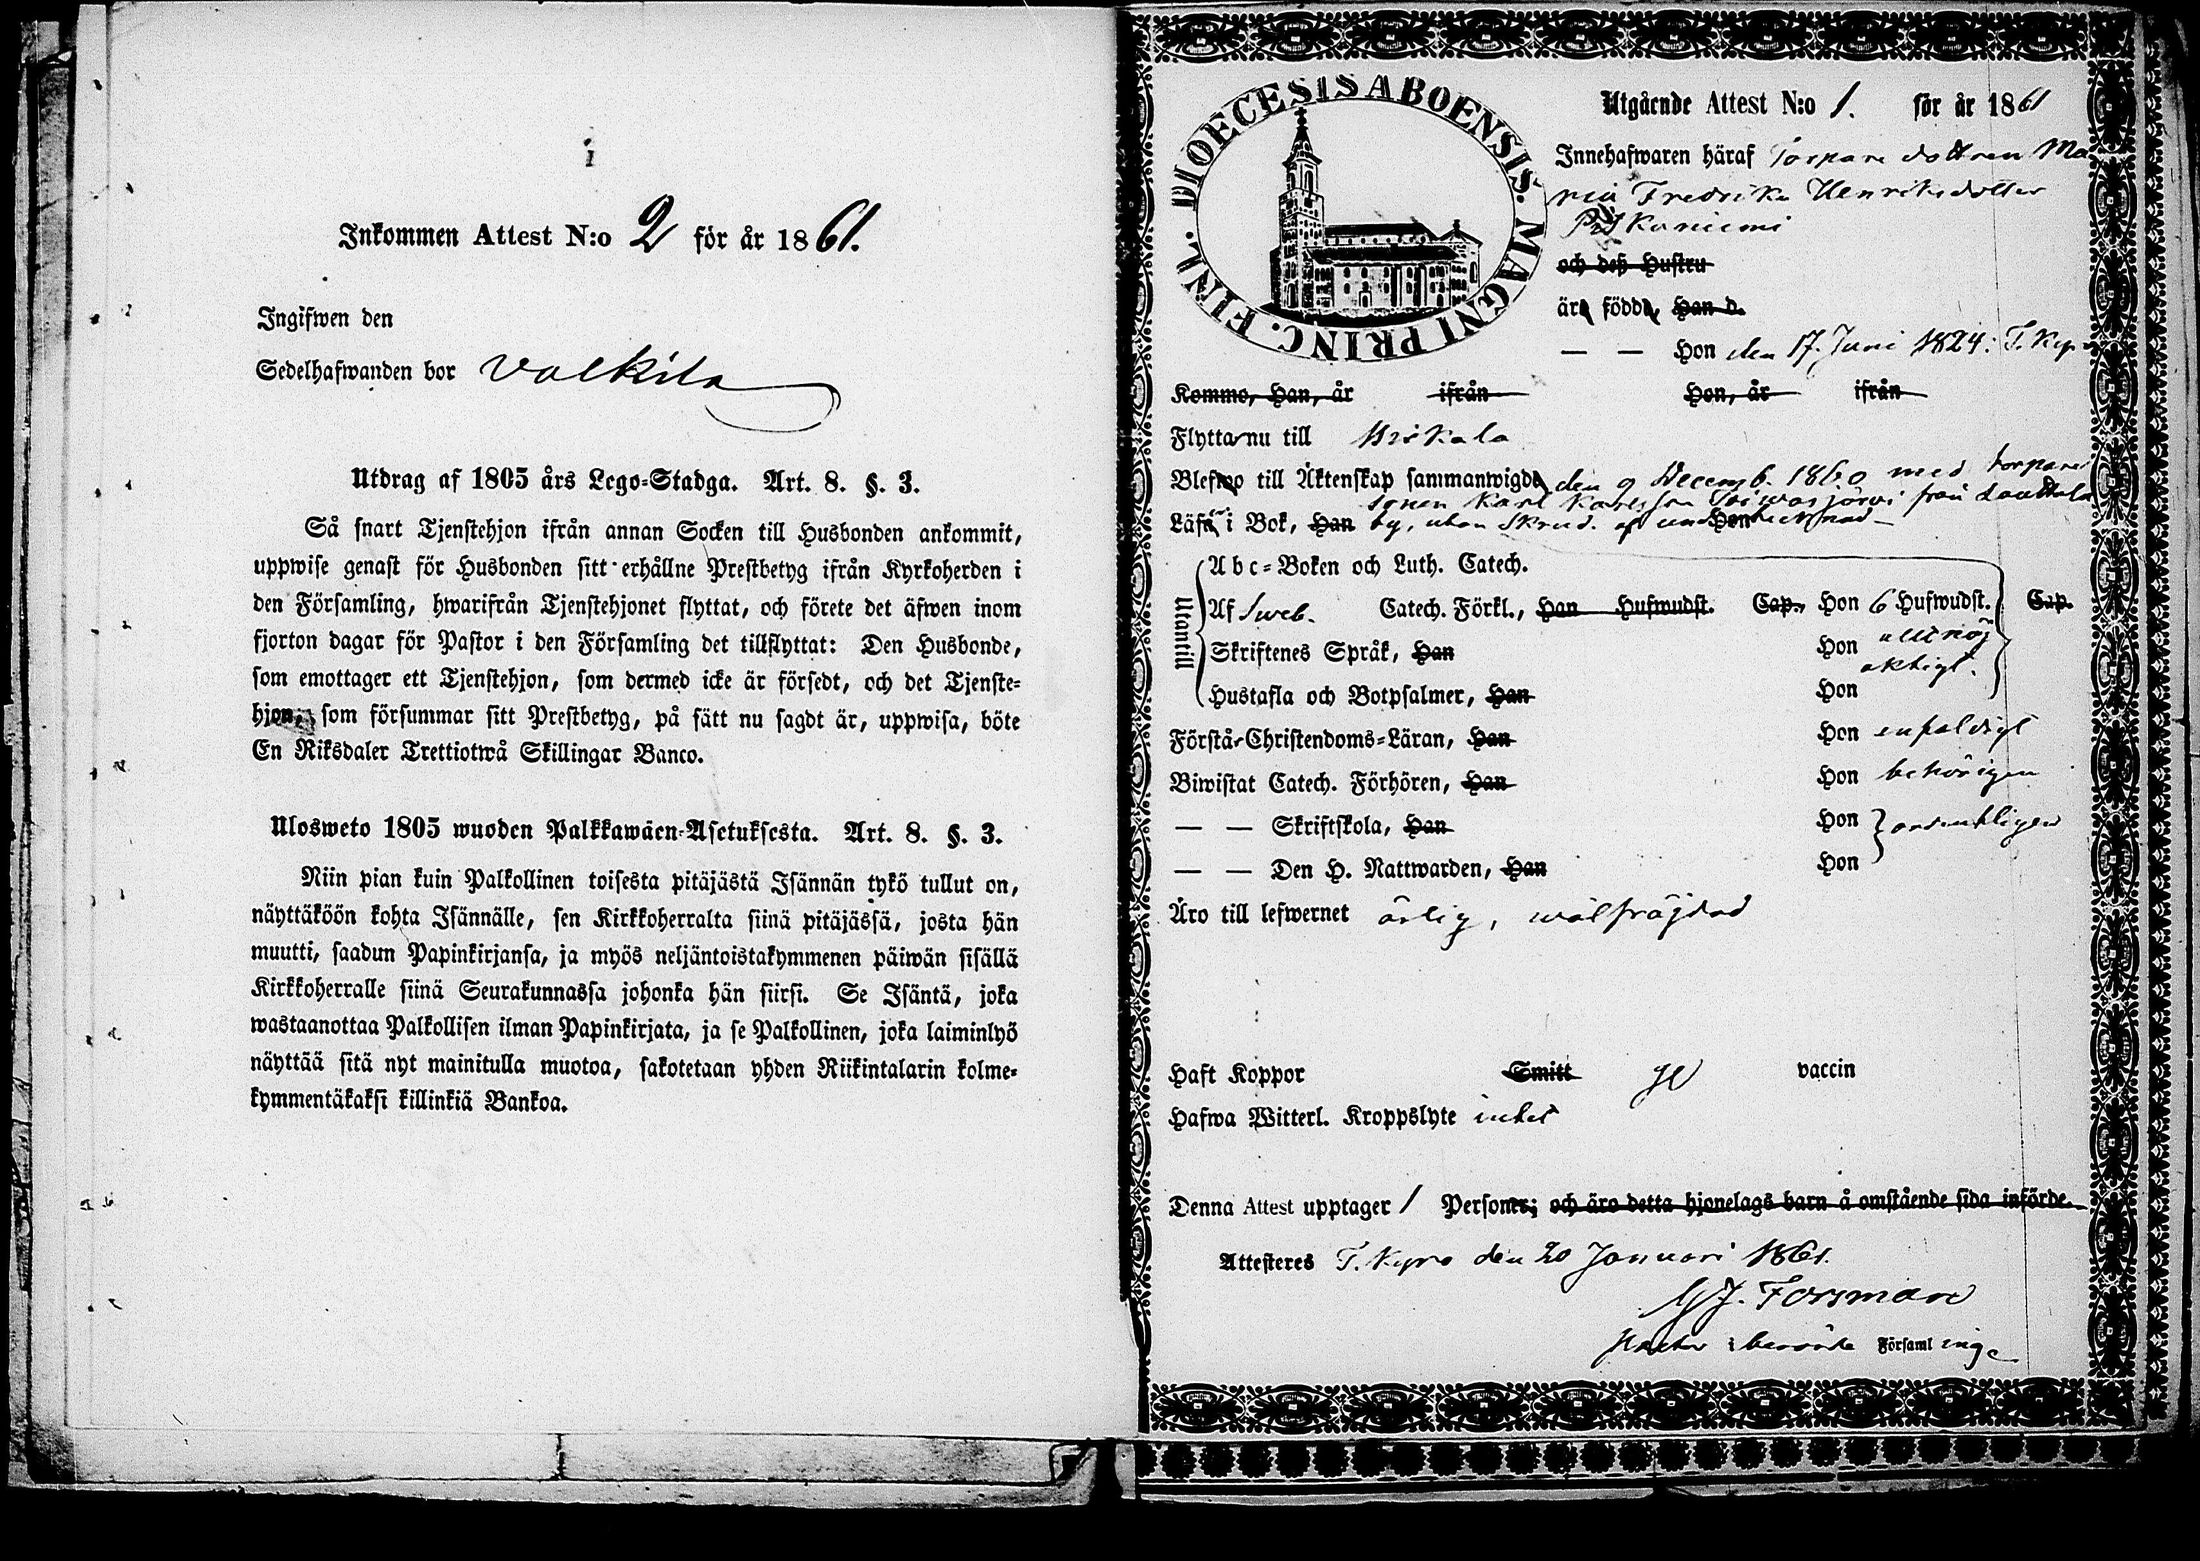 Inkommen Attest N:o 2 för år 1861.
Ingifwen den
Sedelhafwanden bor Valkila
Utdrag af 1805 års Lego-Stadga. Art. 8. §. 3.
Så snart Tjenstehjon ifrån annan Socken till Husbonden ankommit,
uppwise genast för Husbonden sitt erhållne Prestbetyg ifrån Kyrkoherden i
den Församling, hwarifrån Tjenstehjonet flyttat, och förete det äfwen inom
fjorton dagar för Pastor i den Församling det tillflyttat: Den Husbonde,
som emottager ett Tjenstehjon, som dermed icke är försedt, och det Tjenste-
hjon, som försummar sitt Prestbetyg, på sätt nu sagdt är, uppwisa, böte
En Riksdaler Trettiotwå Skillingar Banco.
Ulosweto 1805 wuoden Palkkawäen-Asetuksesta. Art. 8. §. 3.
Niin pian kuin Palkollinen toisesta pitäjästä Isännän tykö tullut on,
näyttäköön kohta Isännälle, sen Kirkkoherralta siinä pitäjässä, josta hän
muutti, saadun Papinkirjansa, ja myös neljäntoistakymmenen päiwän sisällä
Kirkkoherralle siinä Seurakunnassa johonka hän siirsi. Se Isäntä, joka
wastaanottaa Palkollisen ilman Papinkirjata, ja se Palkollinen, joka laiminlyö
näyttää sitä nyt mainitulla muotoa, sakotetaan yhden Riikintalarin kolme-
kymmentäkaksi killinkiä Bankoa.
DIOECESIS ABOENSIS. MAGNI PRINC. FINL.
Utgående Attest N:o 1. för år 1861
Innehafwaren häraf Torpare dottren Ma
ria Fredrika Henriksdotter
och deß Hustru
äro födde, Han d.
— — Hon den 17. Juni 1824: T. Kyro
Kommo, Han, år ifrån Hon, år ifrån
Flytta nu till Urdiala
Blefwo till Äktenskap sammanwigde den 9 Decemb. 1860 med torpare
sonen Karl Karlsson från
Läsa i Bok, Han by, utan Skrud. Hon
Abc-Boken och Luth. Catech.
Utantill
Af Sweb. Catech. Förkl., Han Hufwudst. Cap., Hon 6 Hufwudst. Cap.
Skriftenes Språk, Han Hon allmog
aktigt.
Hustafla och Botpsalmer, Han Hon
Förstår Christendoms-Läran, Han Hon enfaldigt
Biwistat Catech. Förhören, Han Hon behörigen
— — Skriftskola, Han Hon ordentligen
— — Den H. Nattwarden, Han Hon
Äro till lefwernet ärlig, wälfräjdad
Haft Koppor Smitt ge vaccin
Hafwa Witterl. Kroppslyte intet
Denna Attest upptager 1 Personer; och äro detta hjonelags barn å omstående sida införde.
Attesteres T. Kyro den 20 Januari 1861.
G J. Forsman
Pastor i berörde Församl inge